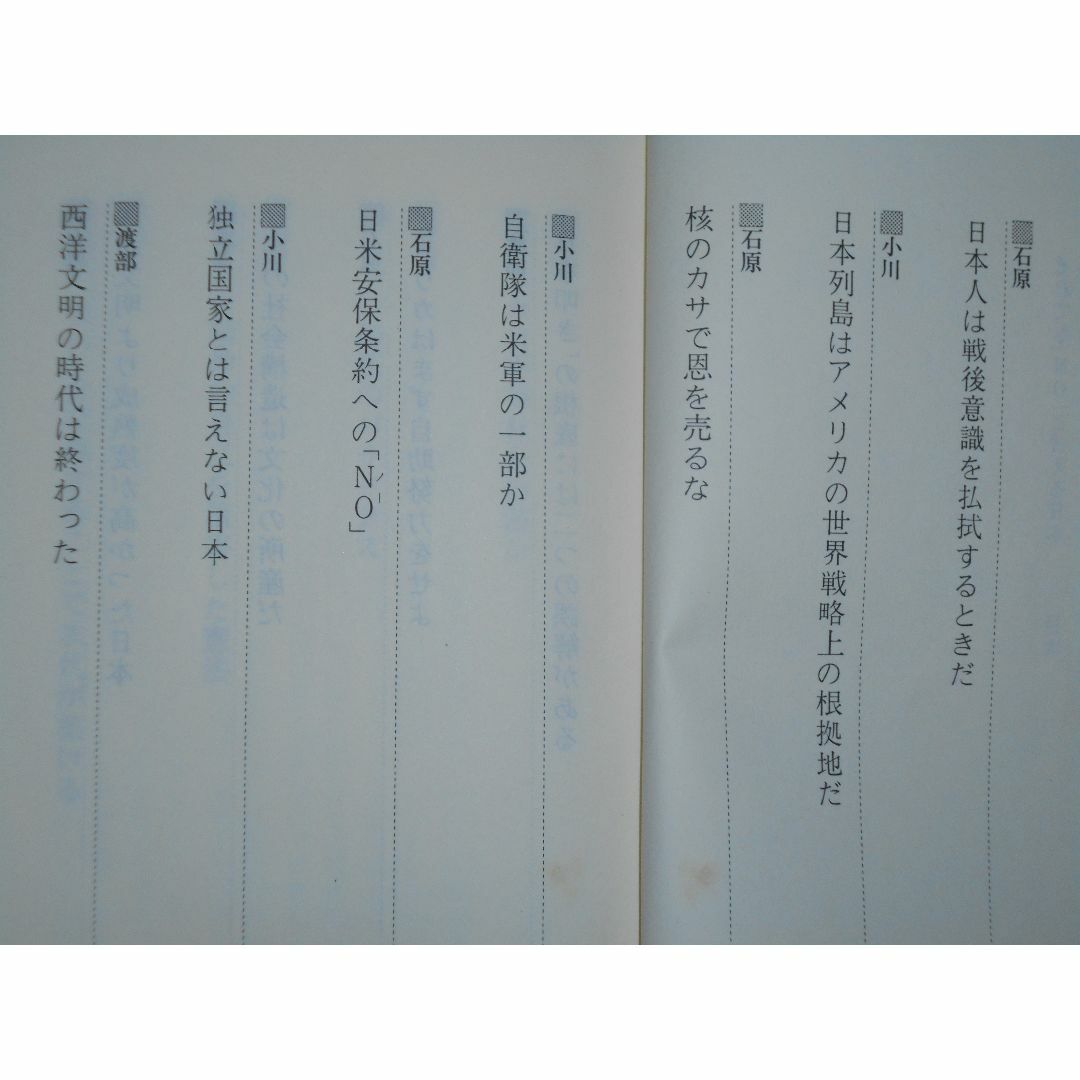 石原
日本人は戦後意識を払拭するときだ
小川
日本列島はアメリカの世界戦略上の根拠地だ
石原
核のカサで恩を売るな
小川
自衛隊は米軍の一部か
石原
日米安保条約への「NO」
ノー
小川
独立国家とは言えない日本
渡部
西洋文明の時代は終わった